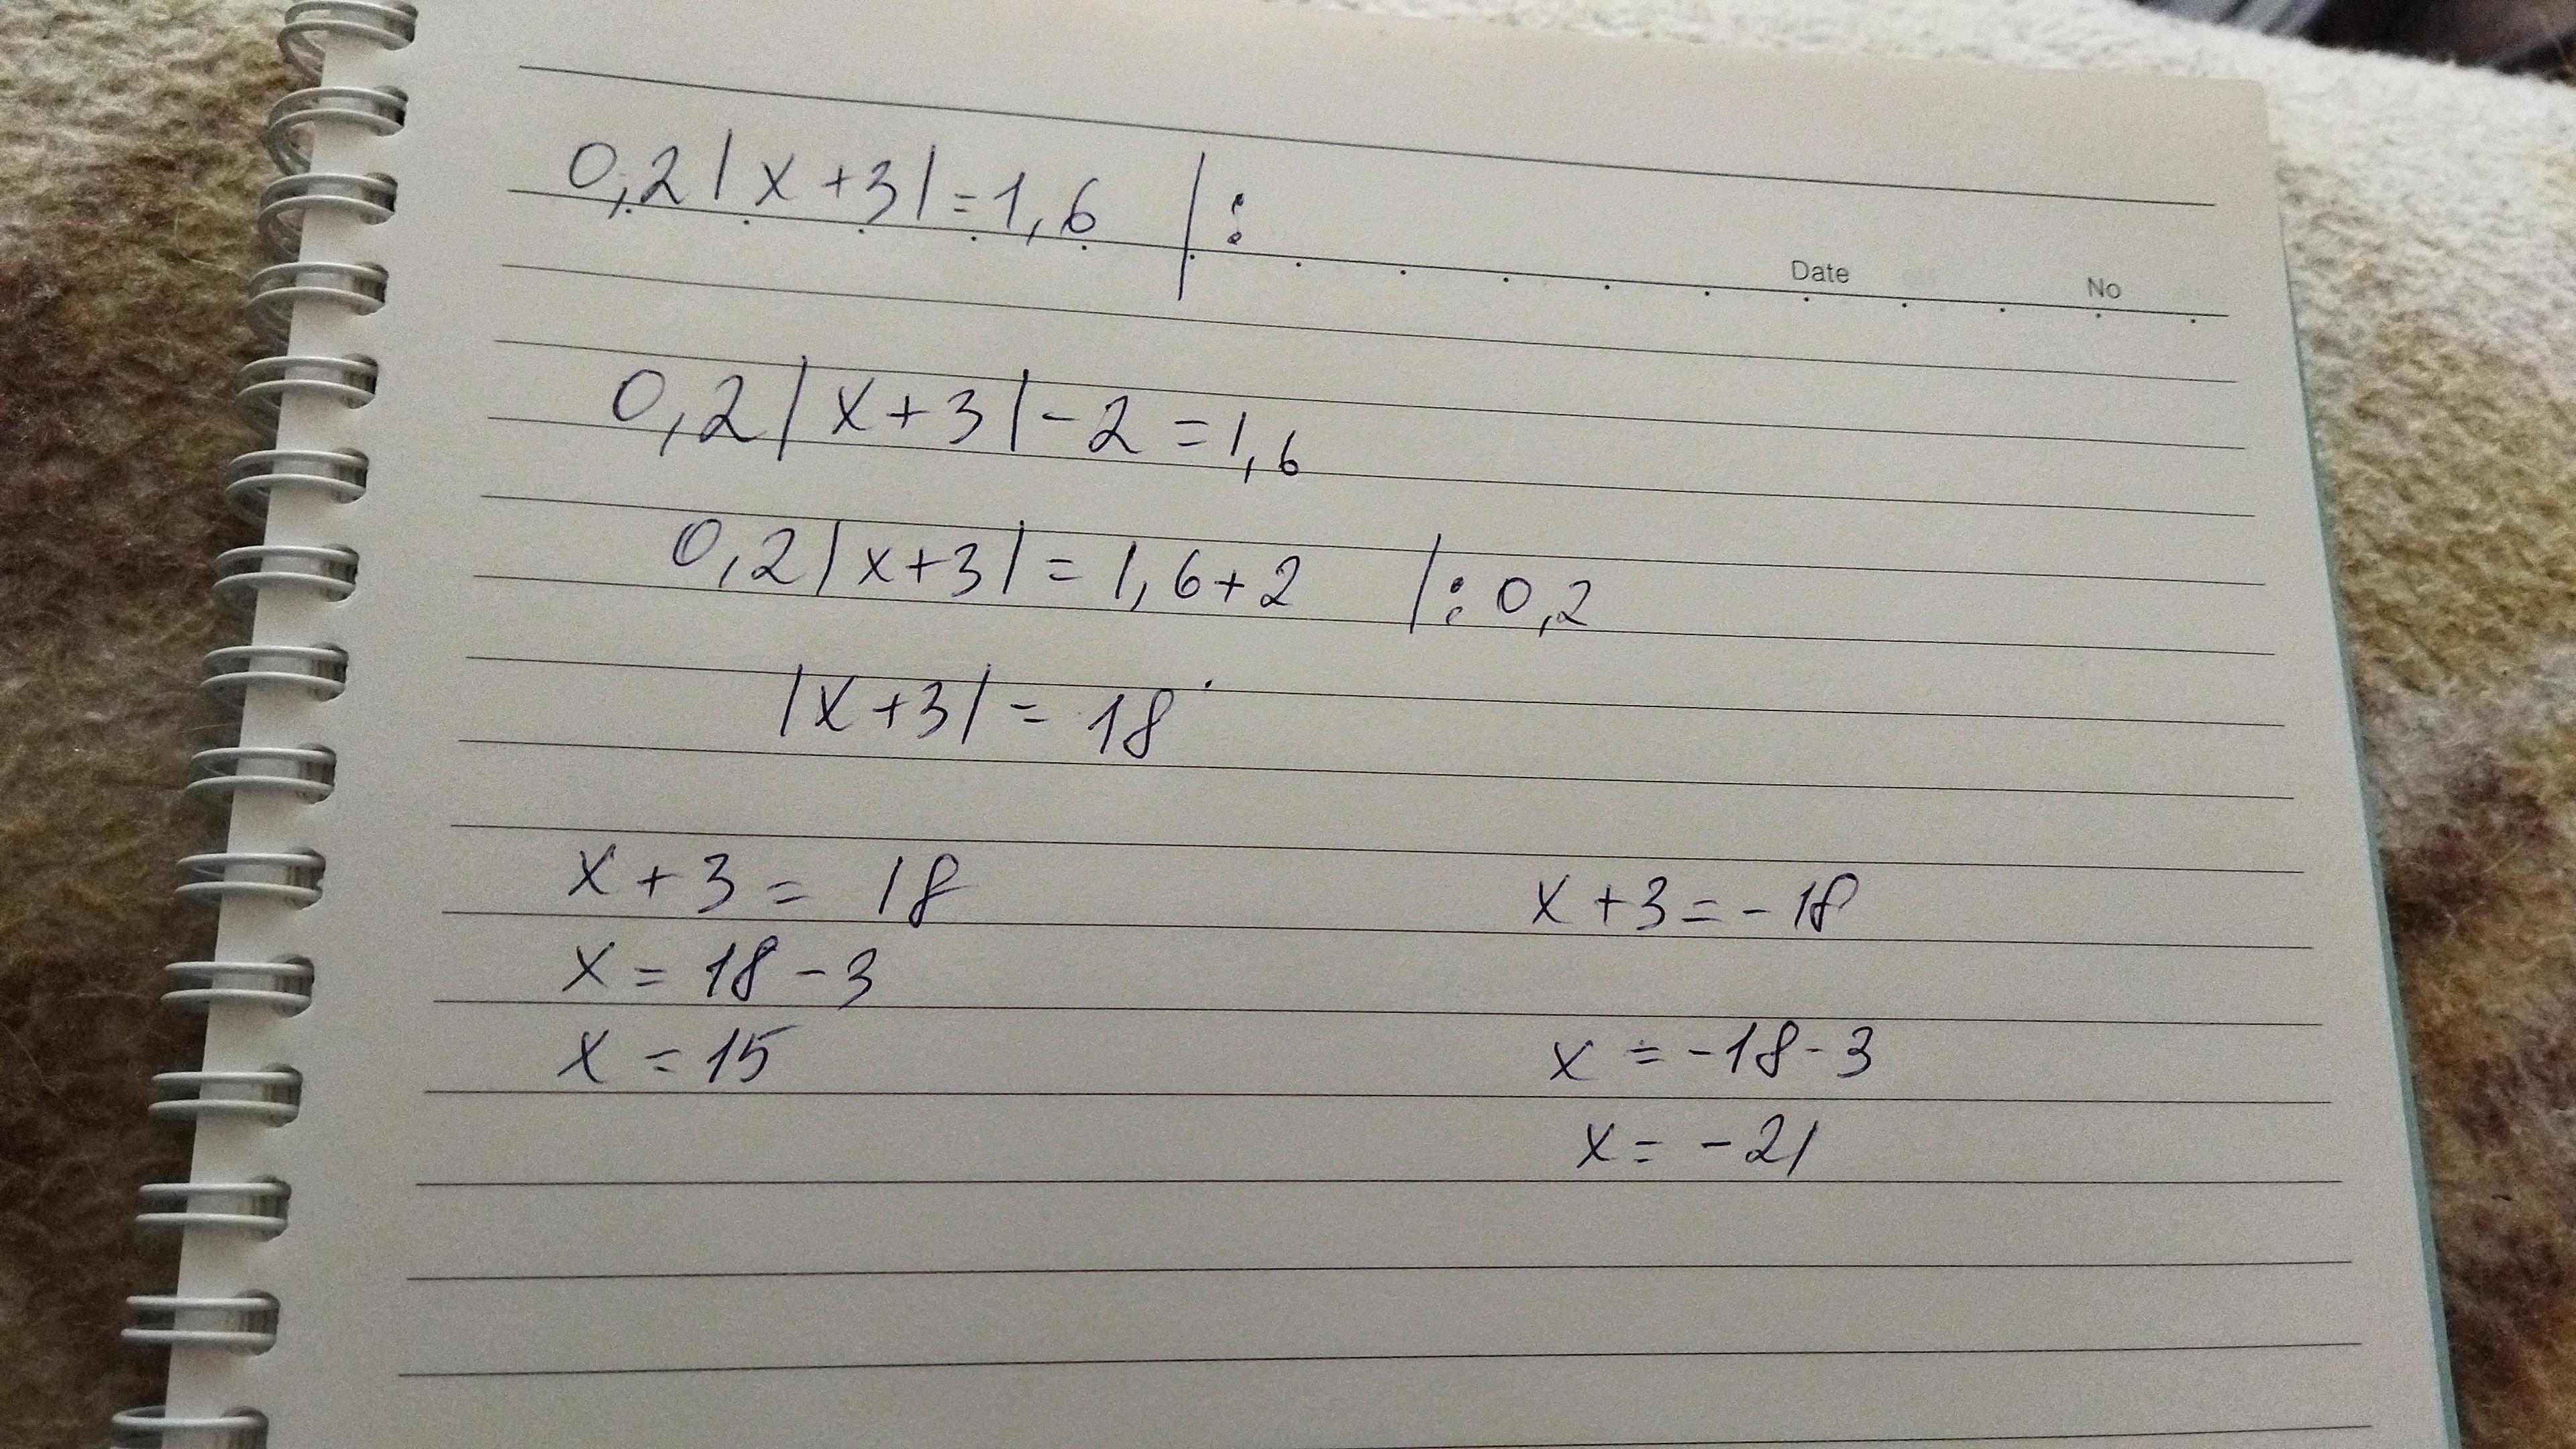 0,2|x+3|=1,6 | :
Date No
0,2|x+3|-2=1,6
0,2|x+3|=1,6+2 |:0,2
|x+3|=18
x+3= 18 x+3=-18
x=18-3
x=-18-3
x=15
x=-21